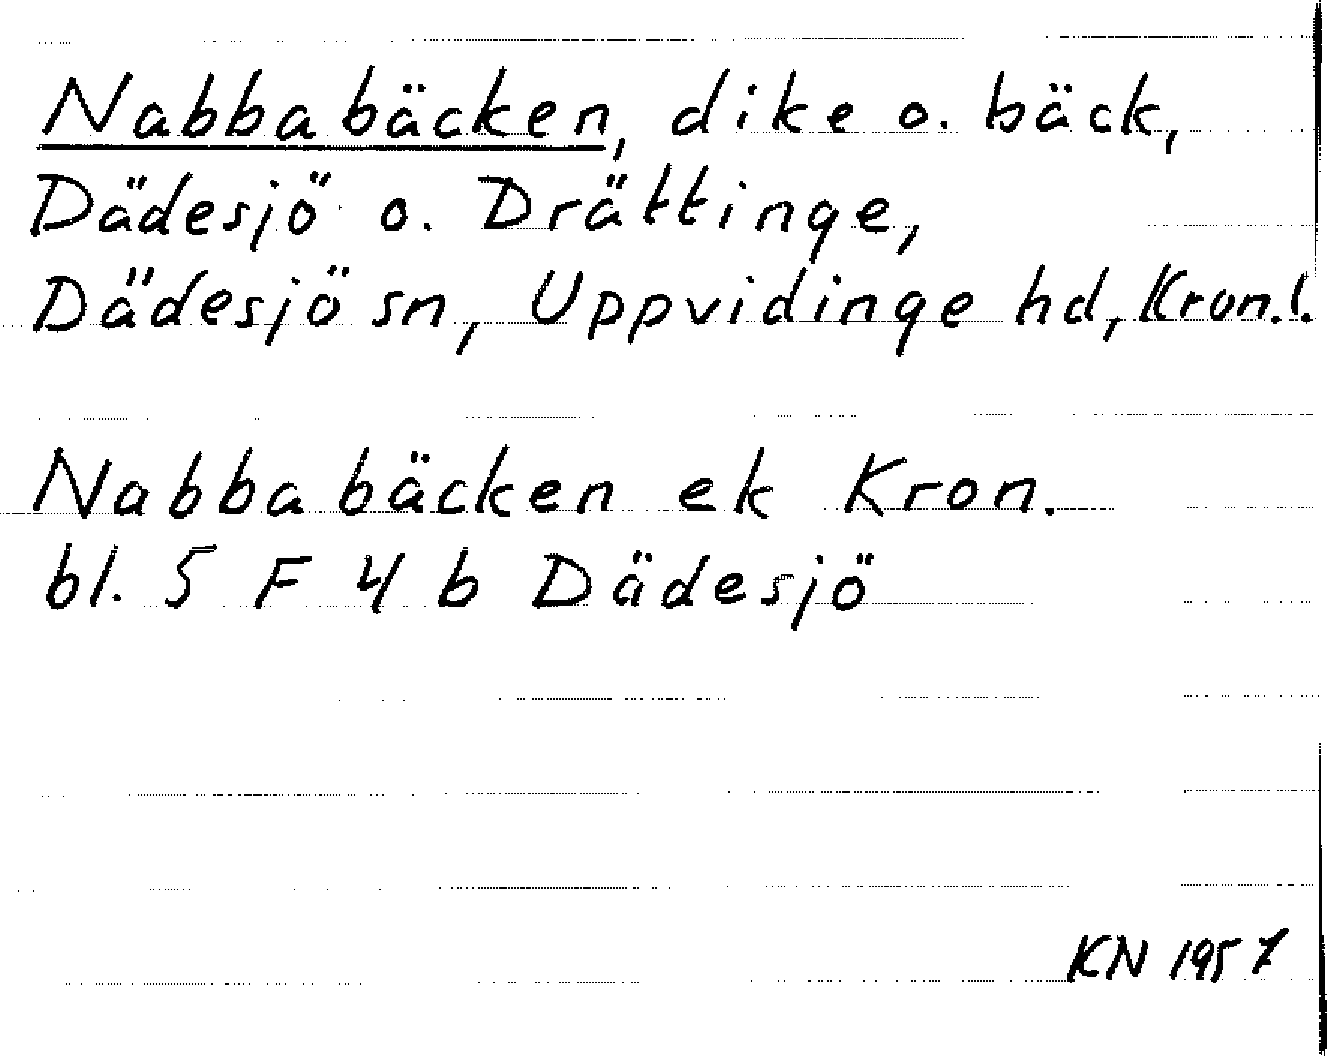 Nabbabäcken, dike o. bäck,
Dädesjö o. Drättinge,
Dädesjö sn, Uppvidinge hd, Kron.l.
Nabbabäcken ek Kron.
bl. 5 F 4 b Dädesjö
KN 1957